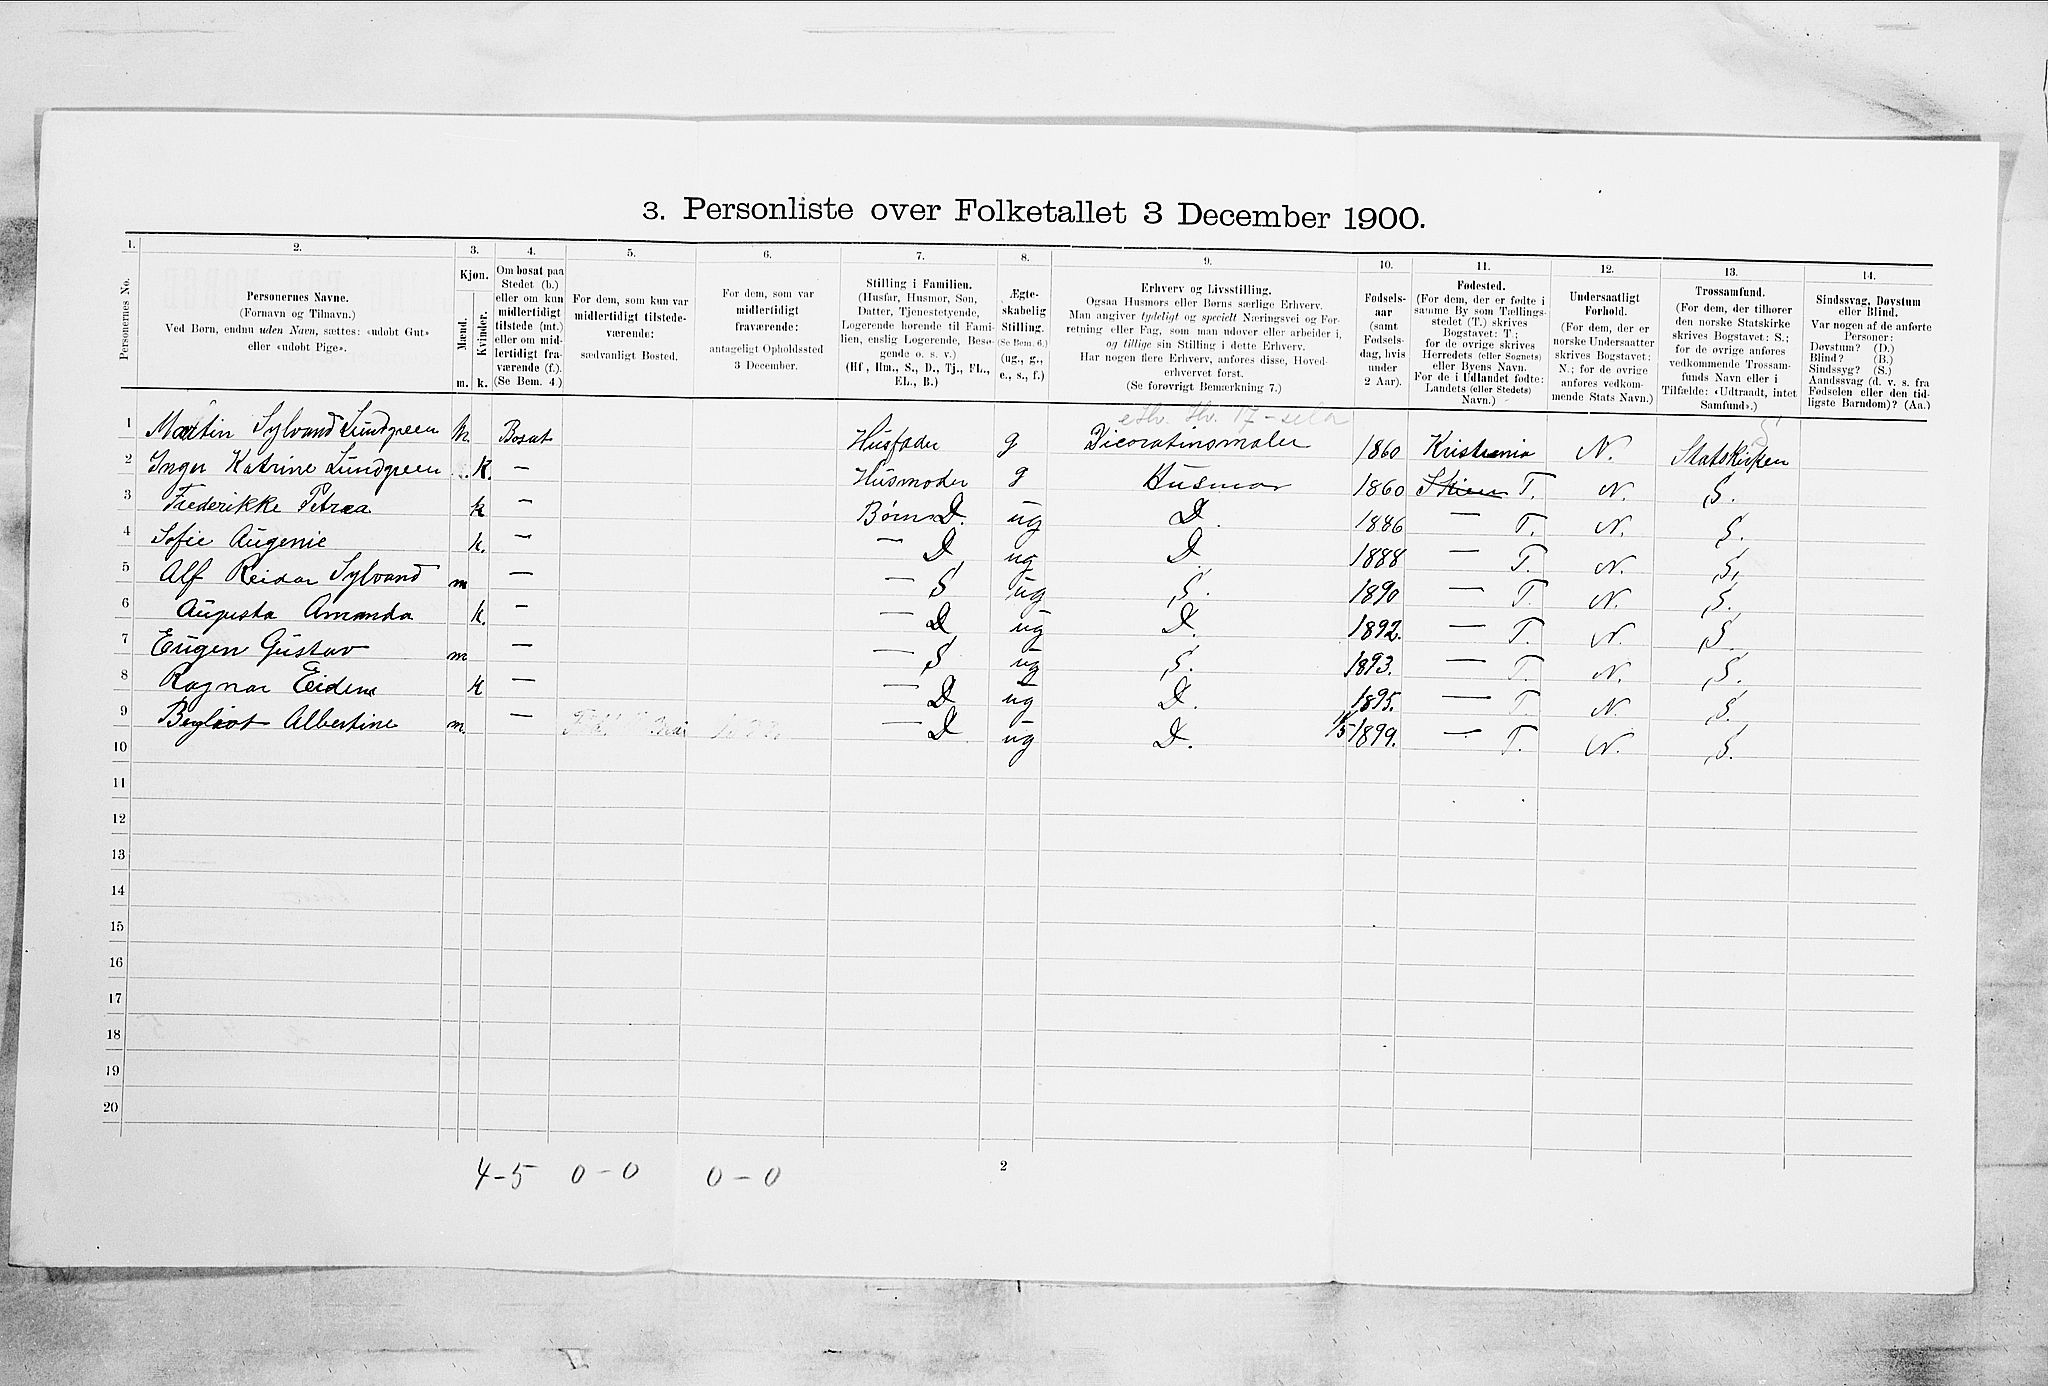 3. Personliste over Folketallet 3 December 1900.
1. 2. 3. 4. 5. 6. 7. 8. 9. 10. 11. 12. 13. 14.
Personernes No.
Personernes Navne.
(Fornavn og Tilnavn.)
Ved Børn, endnu uden Navn, sættes: «udøbt Gut»
eller «udøbt Pige».
Kjøn.
Mænd.
Kvinder.
m. k.
Om bosat paa
Stedet (b.)
eller om kun
midlertidigt
tilstede (mt.)
eller om mid-
lertidigt fra-
værende (f.).
(Se Bem. 4.)
For dem, som kun var
midlertidigt tilstede-
værende:
sædvanligt Bosted.
For dem, som var
midlertidigt
fraværende:
antageligt Opholdssted
3 December.
Stilling i Familien.
(Husfar, Husmor, Søn,
Datter, Tjenestetyende,
Logerende hørende til Fami-
lien, enslig Logerende, Besø-
gende o. s. v.)
(Hf, Hm., S., D., Tj., FL.,
EL., B.)
Ægte-
skabelig
Stilling.
(Se Bem. 6.)
(ug., g.,
e., s., f.)
Erhverv og Livsstilling.
Ogsaa Husmors eller Børns særlige Erhverv.
Man angiver tydeligt og specielt Næringsvei og For-
retning eller Fag, som man udover eller arbeider i,
og tillige sin Stilling i dette Erhverv.
Har nogen flere Erhverv, anføres disse, Hoved-
erhvervet først.
(Se forøvrigt Bemærkning 7.)
Fødsels-
aar
(samt
Fødsels-
dag, hvis
under
2 Aar).
Fødested.
(For dem, der er fødte i
samme By som Tællings-
stedet (T.) skrives
Bogstavet: T.;
for de øvrige skrives
Herredets (eller Sognets)
eller Byens Navn.
For de i Udlandet fødte:
Landets (eller Stedets)
Navn.)
Undersaatligt
Forhold.
(For dem, der er
norske Undersaatter
skrives Bogstavet:
N.; for de øvrige
anføres vedkom-
mende Stats Navn.)
Trossamfund.
(For dem, der tilhører
den norske Statskirke
skrives Bogstavet: S.;
for de øvrige anføres
vedkommende Trossam-
funds Navn eller i
Tilfælde: «Udtraadt, intet
Samfund».)
Sindssvag, Døvstum
eller Blind.
Var nogen af de anførte
Personer:
Døvstum? (D.)
Blind? (B.)
Sindssyg? (S.)
Aandssvag (d. v. s. fra
Fødselen eller den tid-
ligste Barndom)? (Aa.)
1 Martin Sylvand Lundgreen m. Bosat Husfader g Dicoratinsmaler 1860 Kristiania N. Statskirken
2 Inger Katrine Lundgreen k. — Husmoder g Husmor 1860 Skien T. N. S.
3 Frederikke Petrea k — Børn D. ug D. 1886 — T. N. S.
4 Sofie Augenie k. — — D ug D 1888 — T. N. S.
5 Alf Reidar Sylvand m — — S ug S. 1890 — T. N. S.
6 Augusta Amanda k. — — D ug D. 1892. — T. N. S
7 Eugen Gustav m — — S ug S. 1893. — T. N. S.
8 Ragnar Eidem k — — D ug D. 1895. — T N. S.
9 Albertine m. — — D ug D. 1/5 1899. — T. N. S.
10
11
12
13
14
15
16
17
18
19
20
4-5 0-0 0-0
2